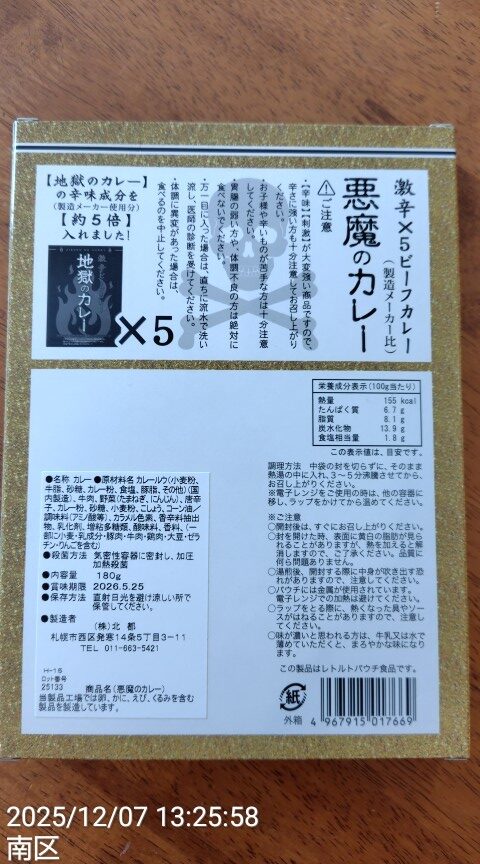 激辛×5ビーフカレー
(製造メーカー比)
悪魔のカレー
⚠ご注意
・【辛味】【刺激】が大変強い商品ですので、
辛さに強い方も十分注意してお召し上がり
ください。
・お子様や辛いものが苦手な方は十分注意
してください。
・胃腸の弱い方や、体調不良の方は絶対に
食べないでください。
・万一目に入った場合は、直ちに流水で洗い
流し、医師の診断を受けてください。
・体調に異変があった場合は、
食べるのを中止してください。
【地獄のカレー】
の辛味成分を
(製造メーカー使用分)
【約5倍】
入れました!
地獄のカレー
×5
栄養成分表示(100g当たり)
熱量 155 kcal
たんぱく質 6.7 g
脂質 8.1 g
炭水化物 13.9 g
食塩相当量 1.8 g
この表示値は、目安です。
調理方法 中袋の封を切らずに、そのまま
熱湯の中に入れ、3~5分沸騰させてから、
お召し上がりください。
※電子レンジをご使用の時は、他の容器に
移し、ラップをかけてから温めてください。
※ご注意
○開封後は、すぐにお召し上がりください。
○封を開けた時、表面に黄白の脂肪が見ら
れることがありますが、熱を加えると解
消しますので、ご了承ください。品質に
何ら問題ありません。
○湯煎後、開封する際に中身が吹き出す恐
れがありますので、注意してください。
○パウチには金属が使用されています。
電子レンジでの加熱は避けてください。
○ラップをとる際に、熱くなった具やソー
スがはねることがありますので、注意し
てください。
○味が濃いと思われる方は、牛乳又は水で
薄めていただくと、まろやかな味になり
ます。
この製品はレトルトパウチ食品です。
紙
外箱
4 967915 017669
●名称 カレー ●原材料名 カレールウ(小麦粉、
牛脂、砂糖、カレー粉、食塩、豚脂、その他)(国
内製造)、牛肉、野菜(たまねぎ、にんじん)、唐辛
子、カレー粉、砂糖、小麦粉、こしょう、コーン油/
調味料(アミノ酸等)、カラメル色素、香辛料抽出
物、乳化剤、増粘多糖類、酸味料、香料、(一
部に小麦・乳成分・豚肉・牛肉・鶏肉・大豆・ゼラ
チン・りんごを含む)
●殺菌方法 気密性容器に密封し、加圧
加熱殺菌
●内容量 180g
●賞味期限 2026.5.25
●保存方法 直射日光を避け涼しい所で
保管してください。
●製造者
(株)北都
札幌市西区発寒14条5丁目3-11
TEL 011-663-5421
HI-15
ロット番号
25133
商品名(悪魔のカレー)
当製品工場では卵、かに、えび、くるみを含む
製品を製造しています。
2025/12/07 13:25:58
南区